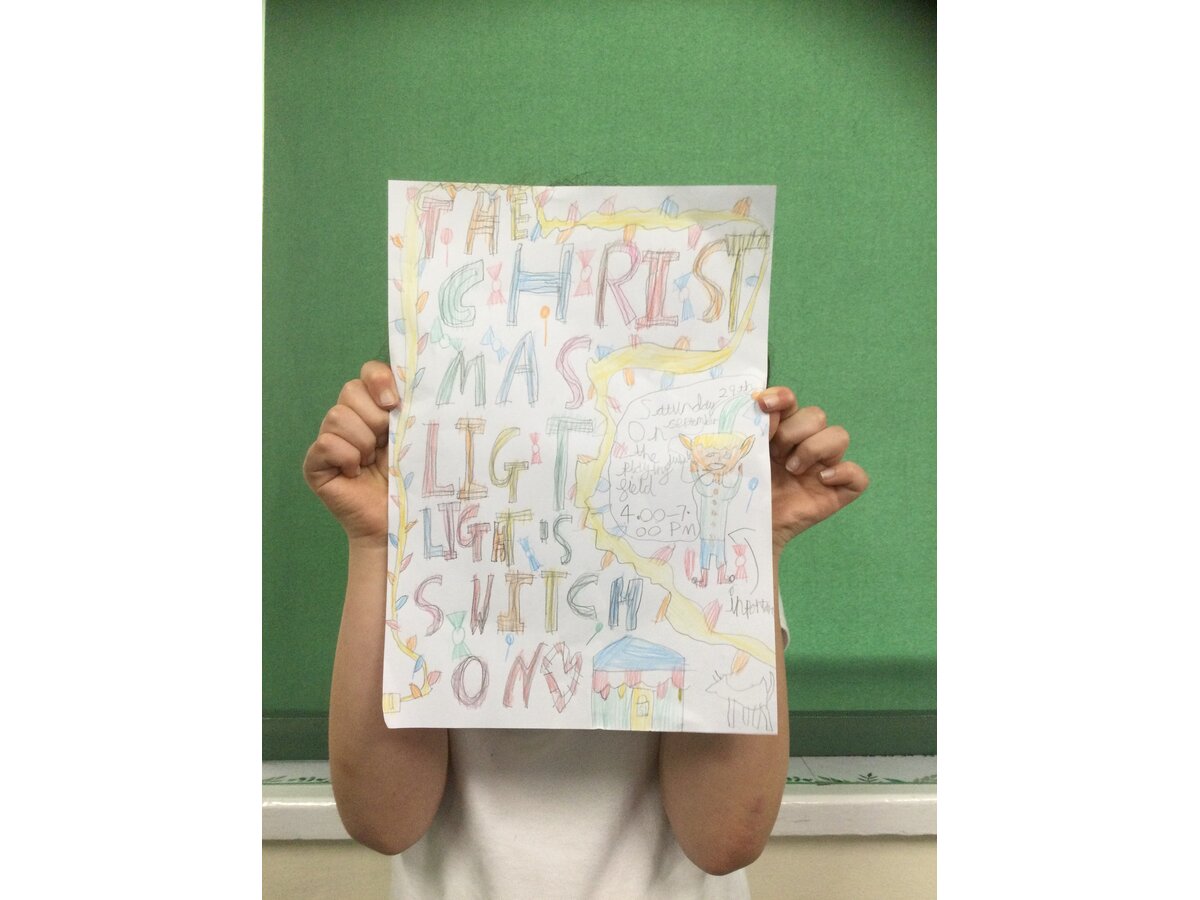 THE
CHRIST
MAS
LIGT
LIGHT'S
SWITCH
ON
Saturday 29th
On
the
playing
field
4.00-7.
00 PM